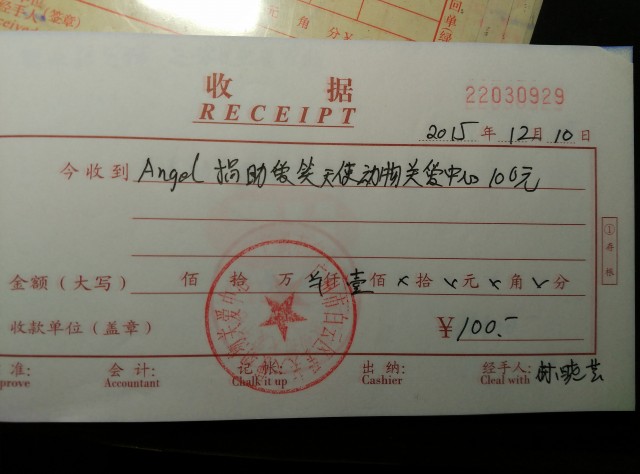 经手人(签章)
元 角 分
收 据 22030929
RECEIPT
2015 年 12 月 10 日
今收到 Angel 捐助爱笑天使动物关爱中心 100元
①存根
金额(大写) 佰 拾 万 仟 壹 佰 × 拾 × 元 × 角 × 分
收款单位(盖章) ¥ 100.-
准: 会 计: 记 帐: 出 纳: 经手人:
prove Accountant Chalk it up Cashier Cleal with